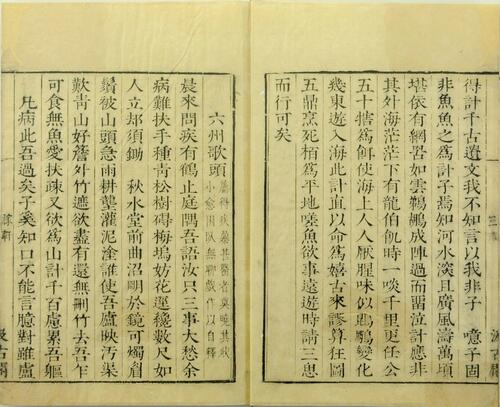 得計千古遺文我不知言以我非子　噫子固
非魚魚之爲計子焉知河水深且廣風濤萬頃
堪依有網罟如雲鵜鶘成陣過而留泣計應非
其外海茫茫下有龍伯飢時一啖千里更任公
五十犗爲餌使海上人人厭腥味似鵾鵬變化
幾東遊入海此計直以命爲嬉古來謬算狂圖
五鼎烹死栢爲平地嗟魚欲事遠遊時請三思
而行可矣
六州歌頭
屬得疾暴甚醫者莫曉其狀
小愈困臥無聊戲作以自釋
晨來問疾有鶴止庭隅吾語汝只三事大愁余
病難扶手種青松樹礙梅塢妨花逕纔數尺如
人立却須鋤　秋水堂前曲沼明於鏡可燭眉
鬚被山頭急雨耕壟灌泥塗誰使吾廬映汚渠
歎青山好簷外竹遮欲盡有還無刪竹去吾乍
可食無魚愛扶疎又欲爲山計千百慮累吾軀
凡病此吾過矣子奚知口不能言臆對雖盧